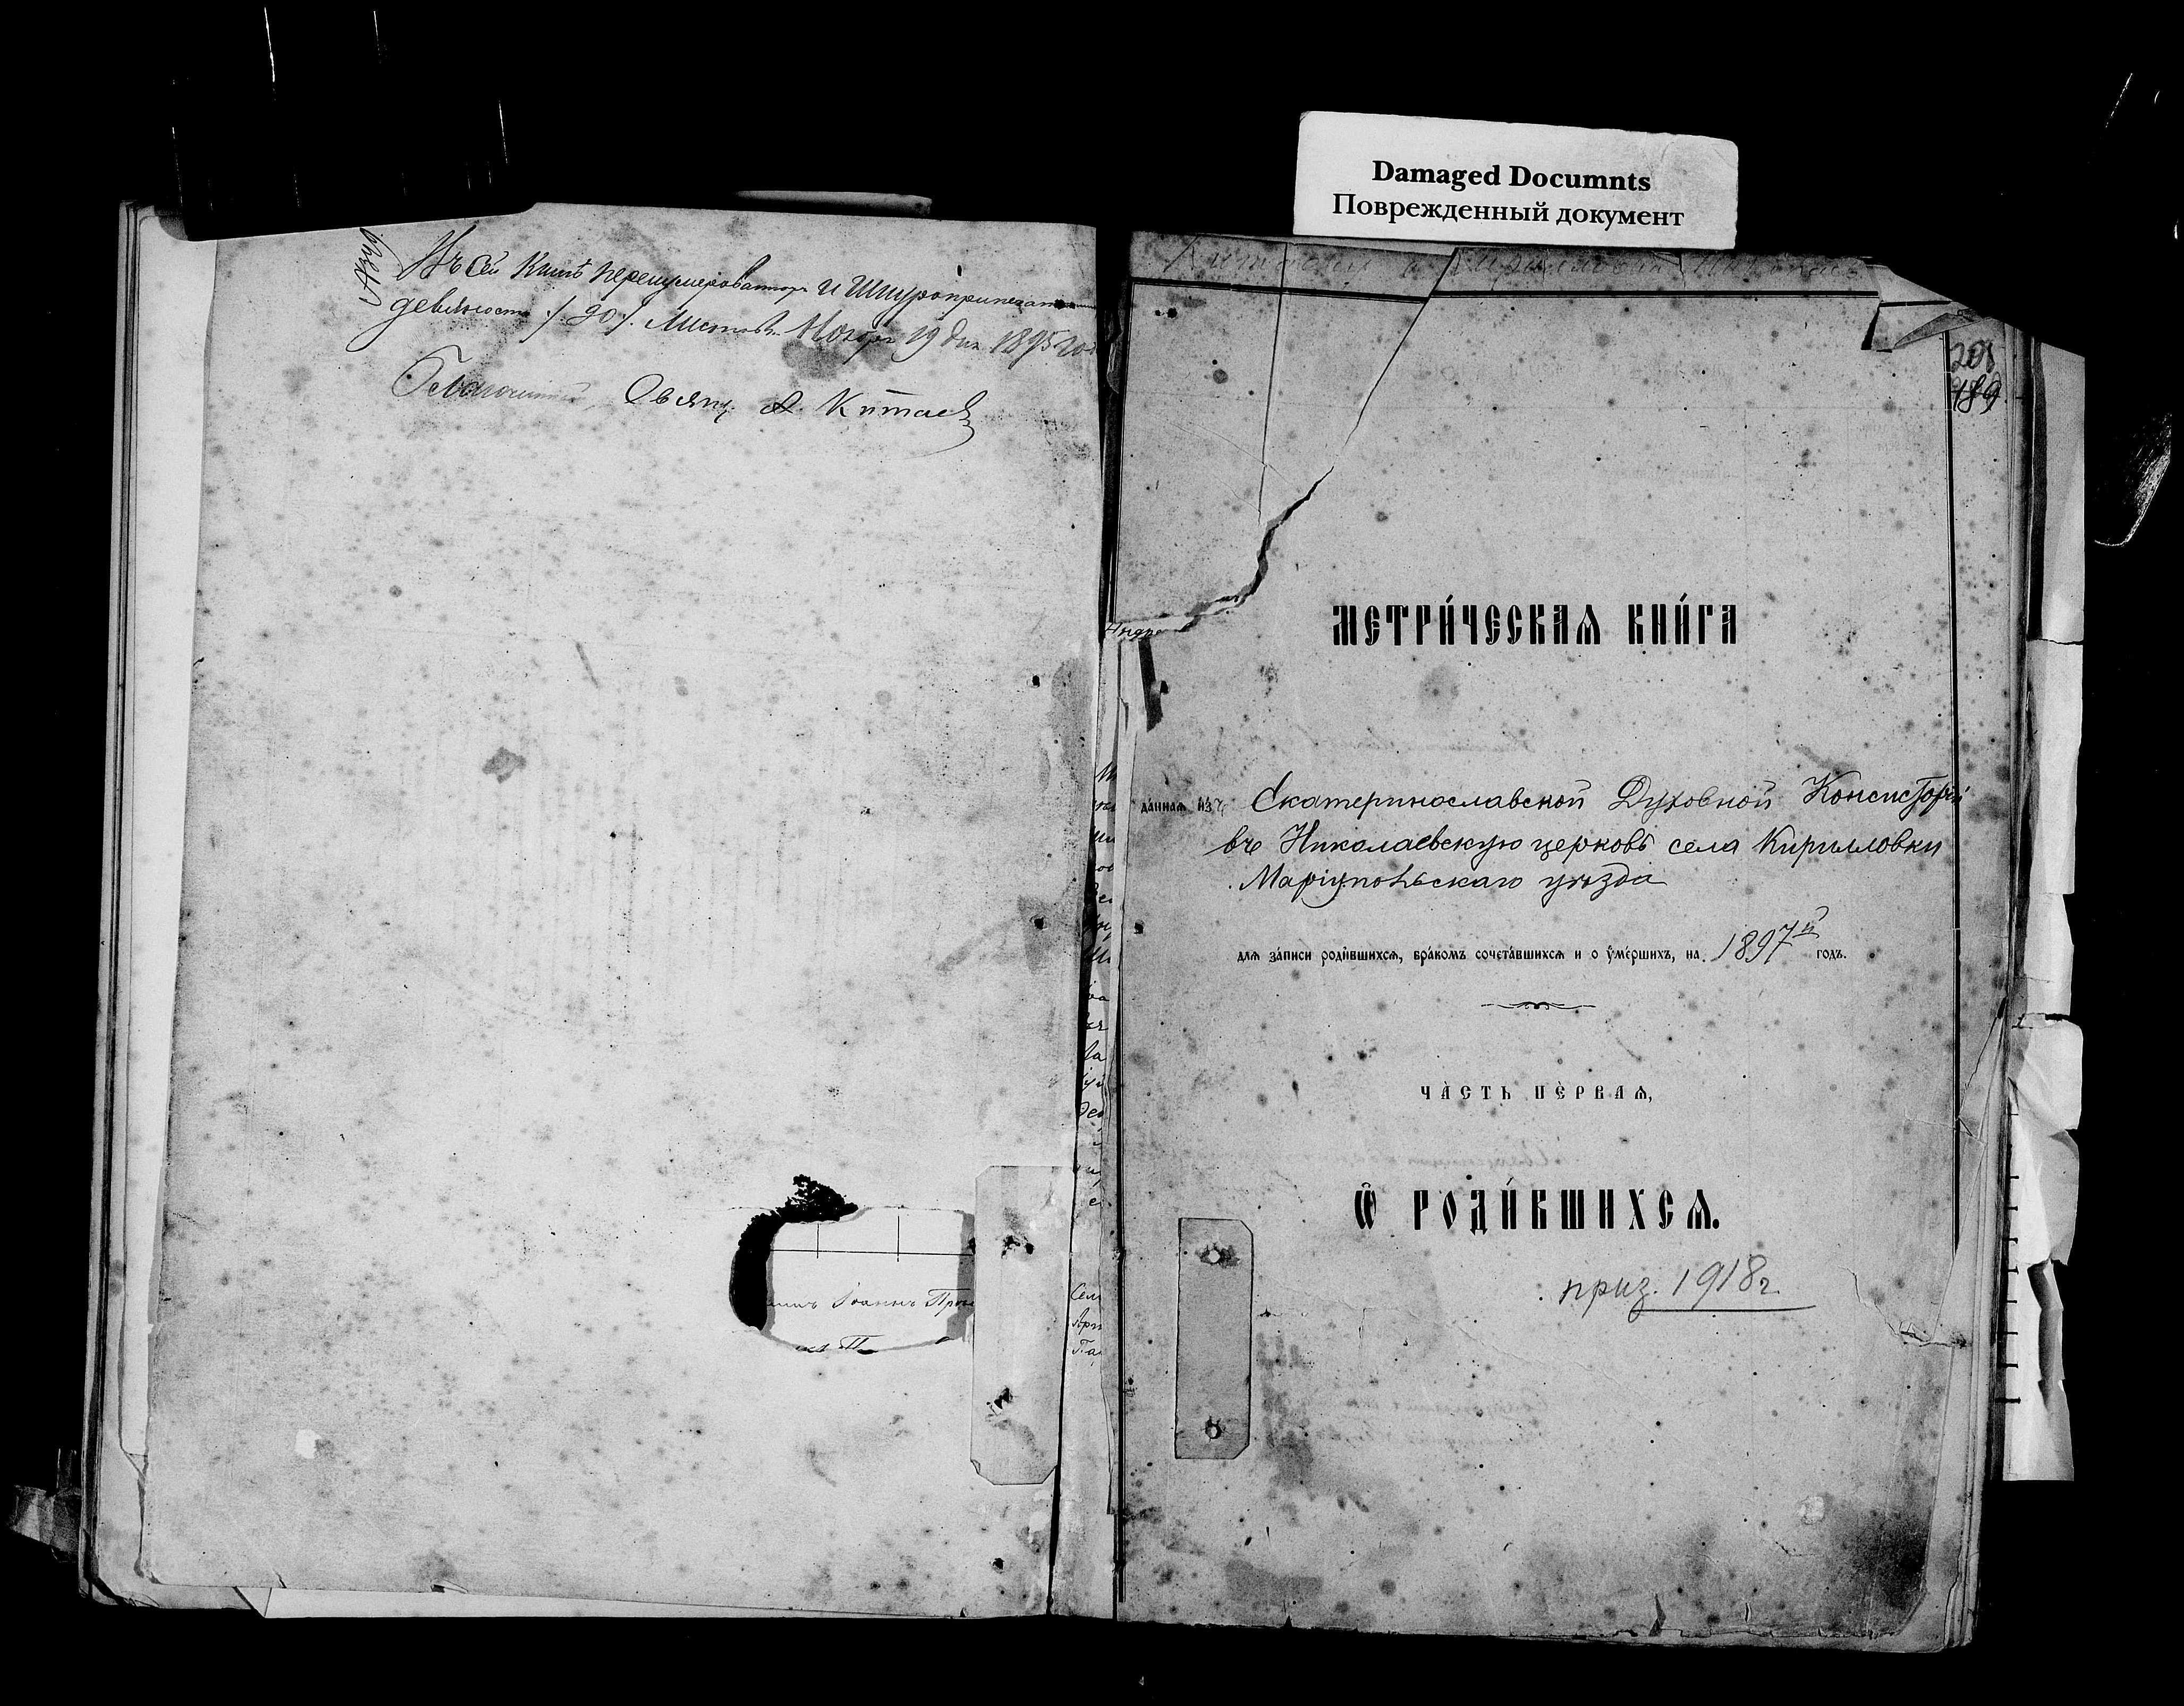 Damaged Documnts
Поврежденный документ
Въ сей Книгѣ перенумерованной и Шнуроприпечатан
девяносто /90/ Листовъ. Ноября 19 дня 1895 год
Благочинный, Свящ. А. Китаев
Іоаннъ
205
489
МЕТРИ́ЧЕСКАѦ КНИ́ГА
да́ннаѧ изъ Екатеринославской Духовной Консисторіи
въ Николаевскую церковь села Кирилловки
Маріупольскаго уѣзда
длѧ за́писи роди́вшихсѧ, бра́комъ сочета́вшихсѧ и о ᲂуме́ршихъ, на 1897й годъ.
ЧА́СТЬ ПЕ́РВАѦ,
Ѽ РОДИ́ВШИХСѦ.
приз. 1918 г.